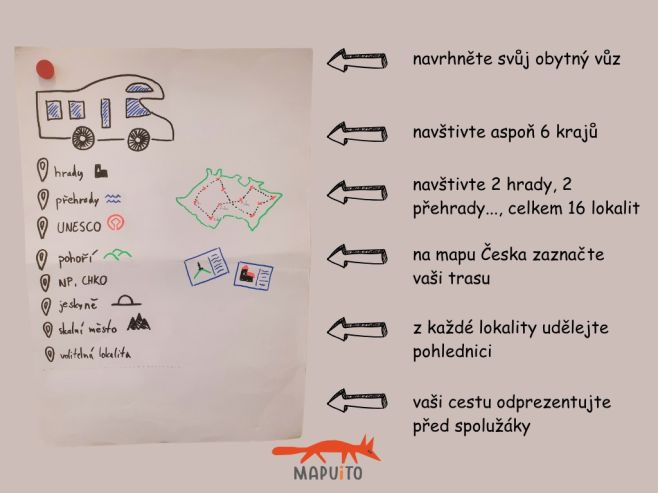 hrady
přehrady
UNESCO
pohoří
NP, CHKO
jeskyně
skalní město
volitelná lokalita
navrhněte svůj obytný vůz
navštivte aspoň 6 krajů
navštivte 2 hrady, 2
přehrady..., celkem 16 lokalit
na mapu Česka zaznačte
vaši trasu
z každé lokality udělejte
pohlednici
vaši cestu odprezentujte
před spolužáky
MAPUiTO